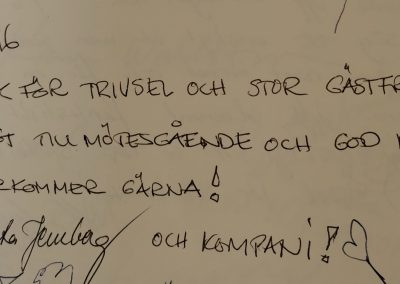 16
K FÖR TRIVSEL OCH STOR GÄSTFR
GT TILLMÖTESGÅENDE OCH GOD
RKOMMER GÄRNA!
OCH KOMPANI!